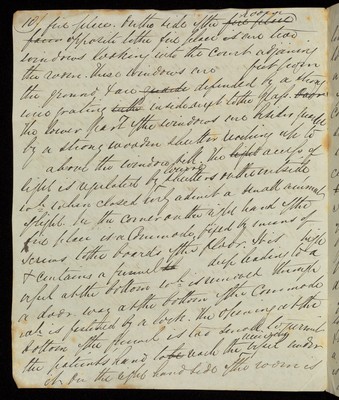 10) fire place. On the side of the room
opposite to the fire place is are two
windows looking into the Court adjoining
the room. These windows are feet from
the ground & are defended by a strong
wire grating outside next to the glass.
the lower part of the windows are
by a strong wooden shutter coming up to
above the window. The access of
light is regulated by shutters on the outside
wch when closed only admit a small amount
of light. In the corner on the right hand of the
fire place is a Commode, fixed by means of
screws to the boards of the floor. It is high
& contains a funnel deep leading to a
vessel at the bottom wch is removed through
a door way at the bottom of the Commode
wch is secured by a lock. The opening at the
bottom of the funnel is too small to permit
the patients hand to reach the vessel under
it. On the left hand side of the room is